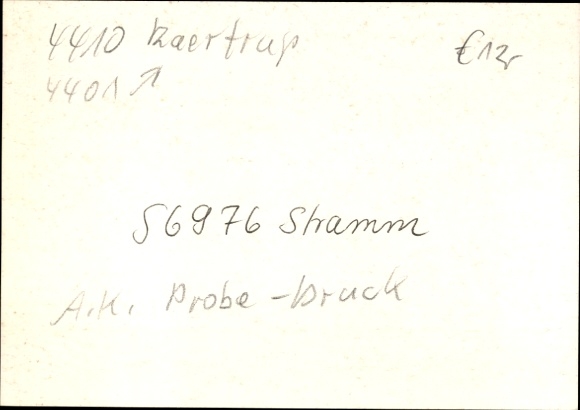 4410 Raertrup €12,-
4401 ↗
S6976 Stramm
A.K. Probe-Druck